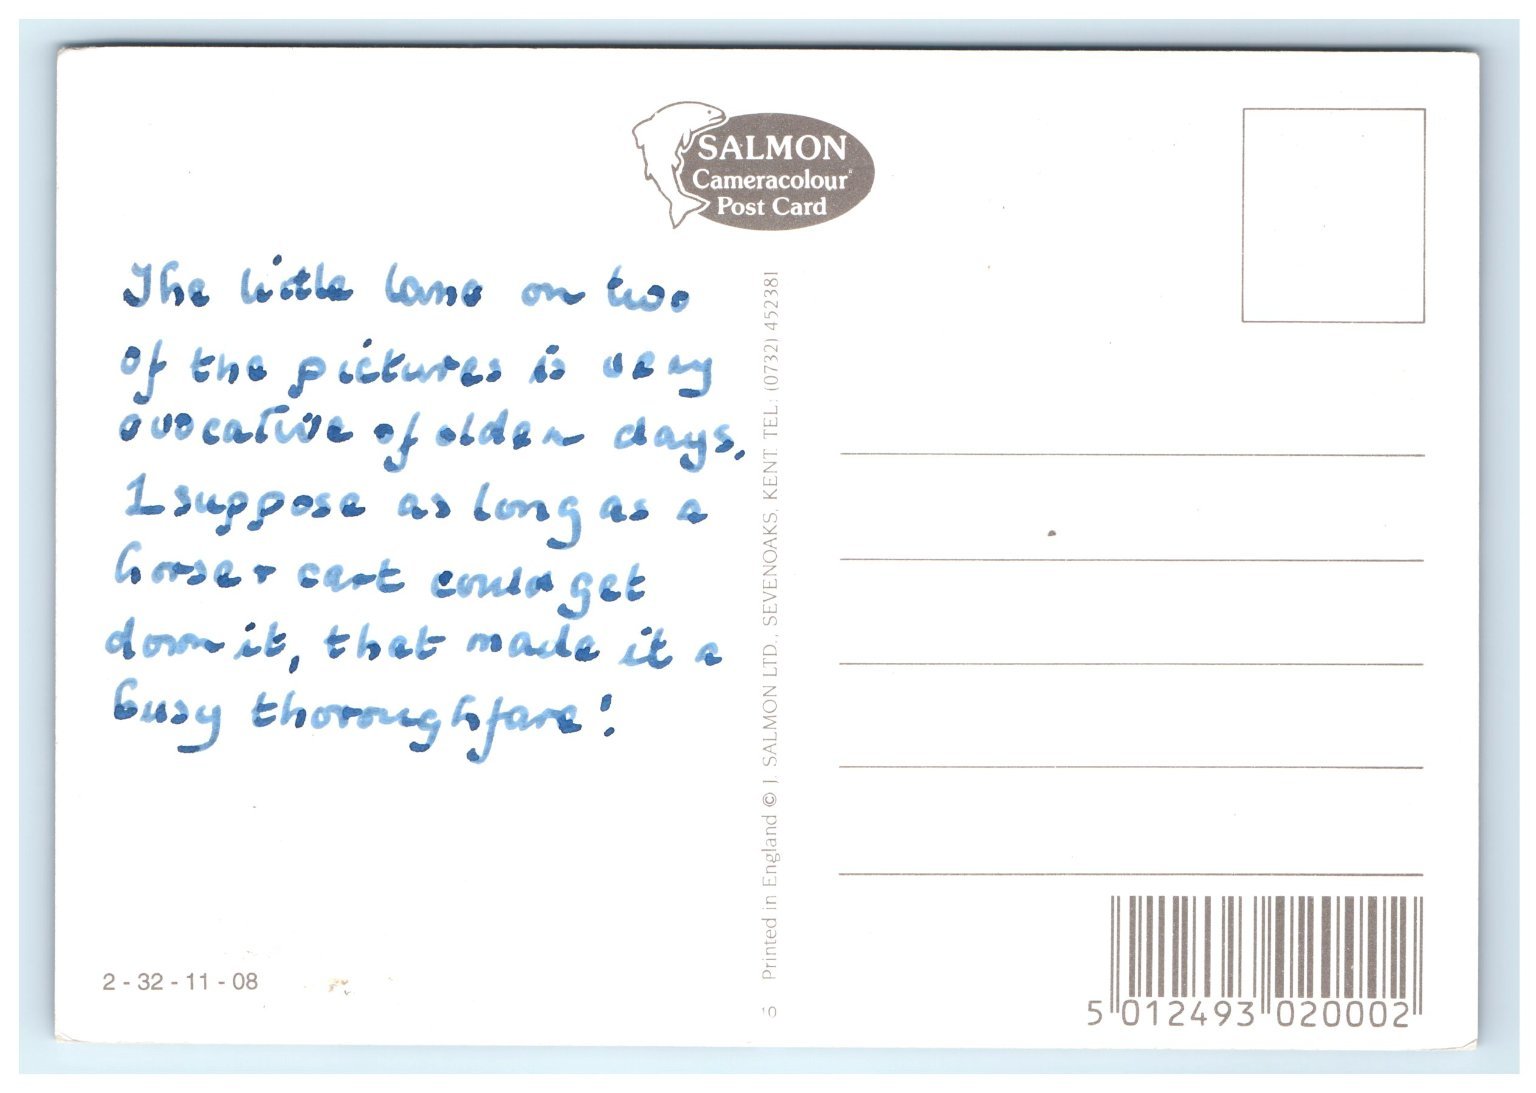 SALMON
Cameracolour
Post Card
The little lane on two
of the pictures is very
evocative of olden days.
I suppose as long as a
horse + cart could get
down it, that made it a
busy thoroughfare!
Printed in England © J. SALMON LTD., SEVENOAKS, KENT. TEL: (0732) 452381
2 - 32 - 11 - 08
5 012493 020002